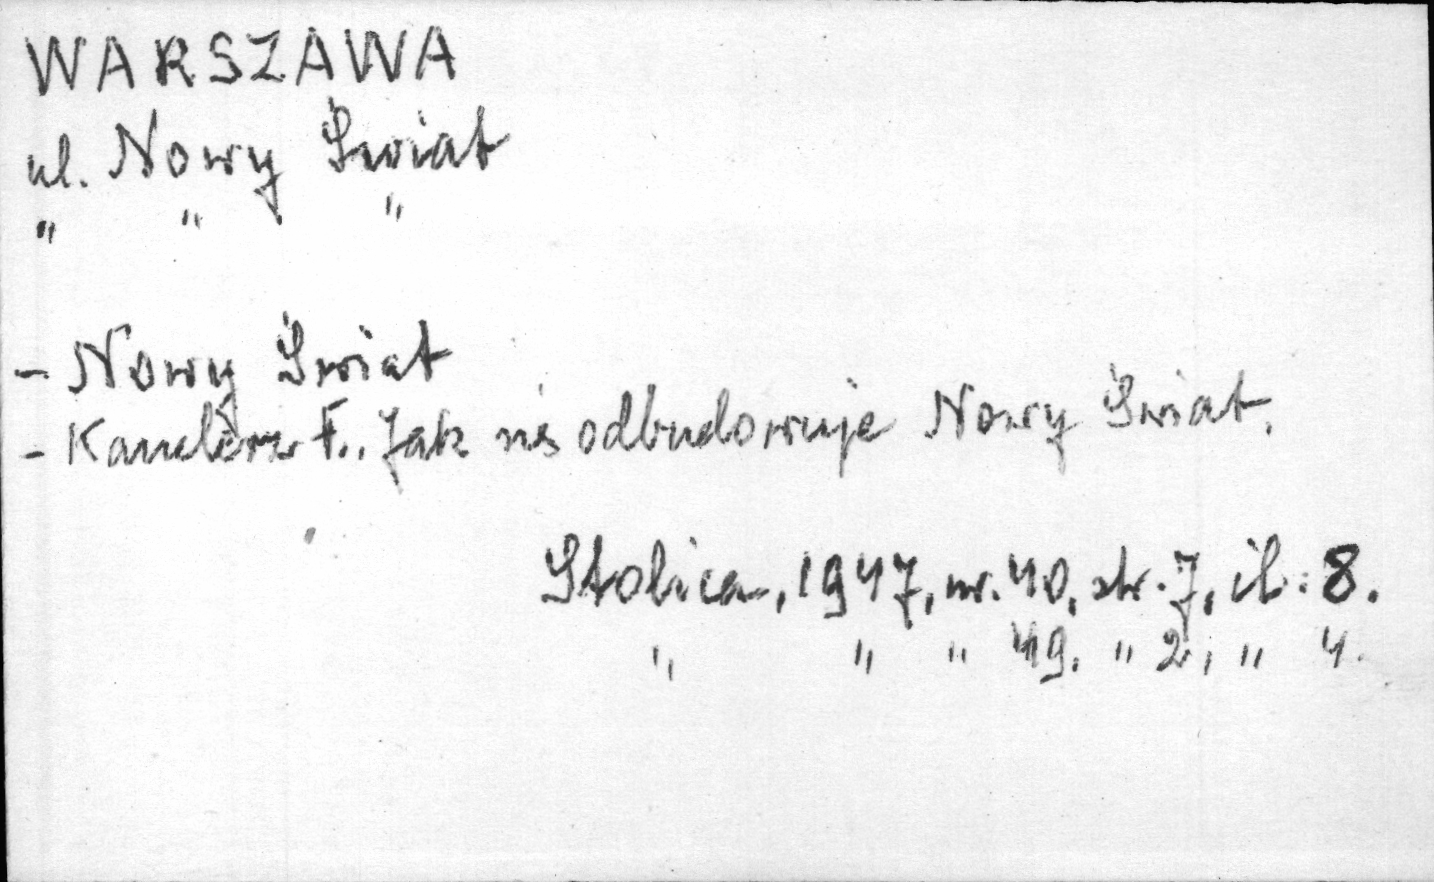 WARSZAWA
ul. Nowy Świat
" " "
- Nowy Świat
- F., Jak się odbudowuje Nowy Świat.
Stolica, 1947, nr. 40, str. 7, il: 8.
" " " 49, " 2, " 4.